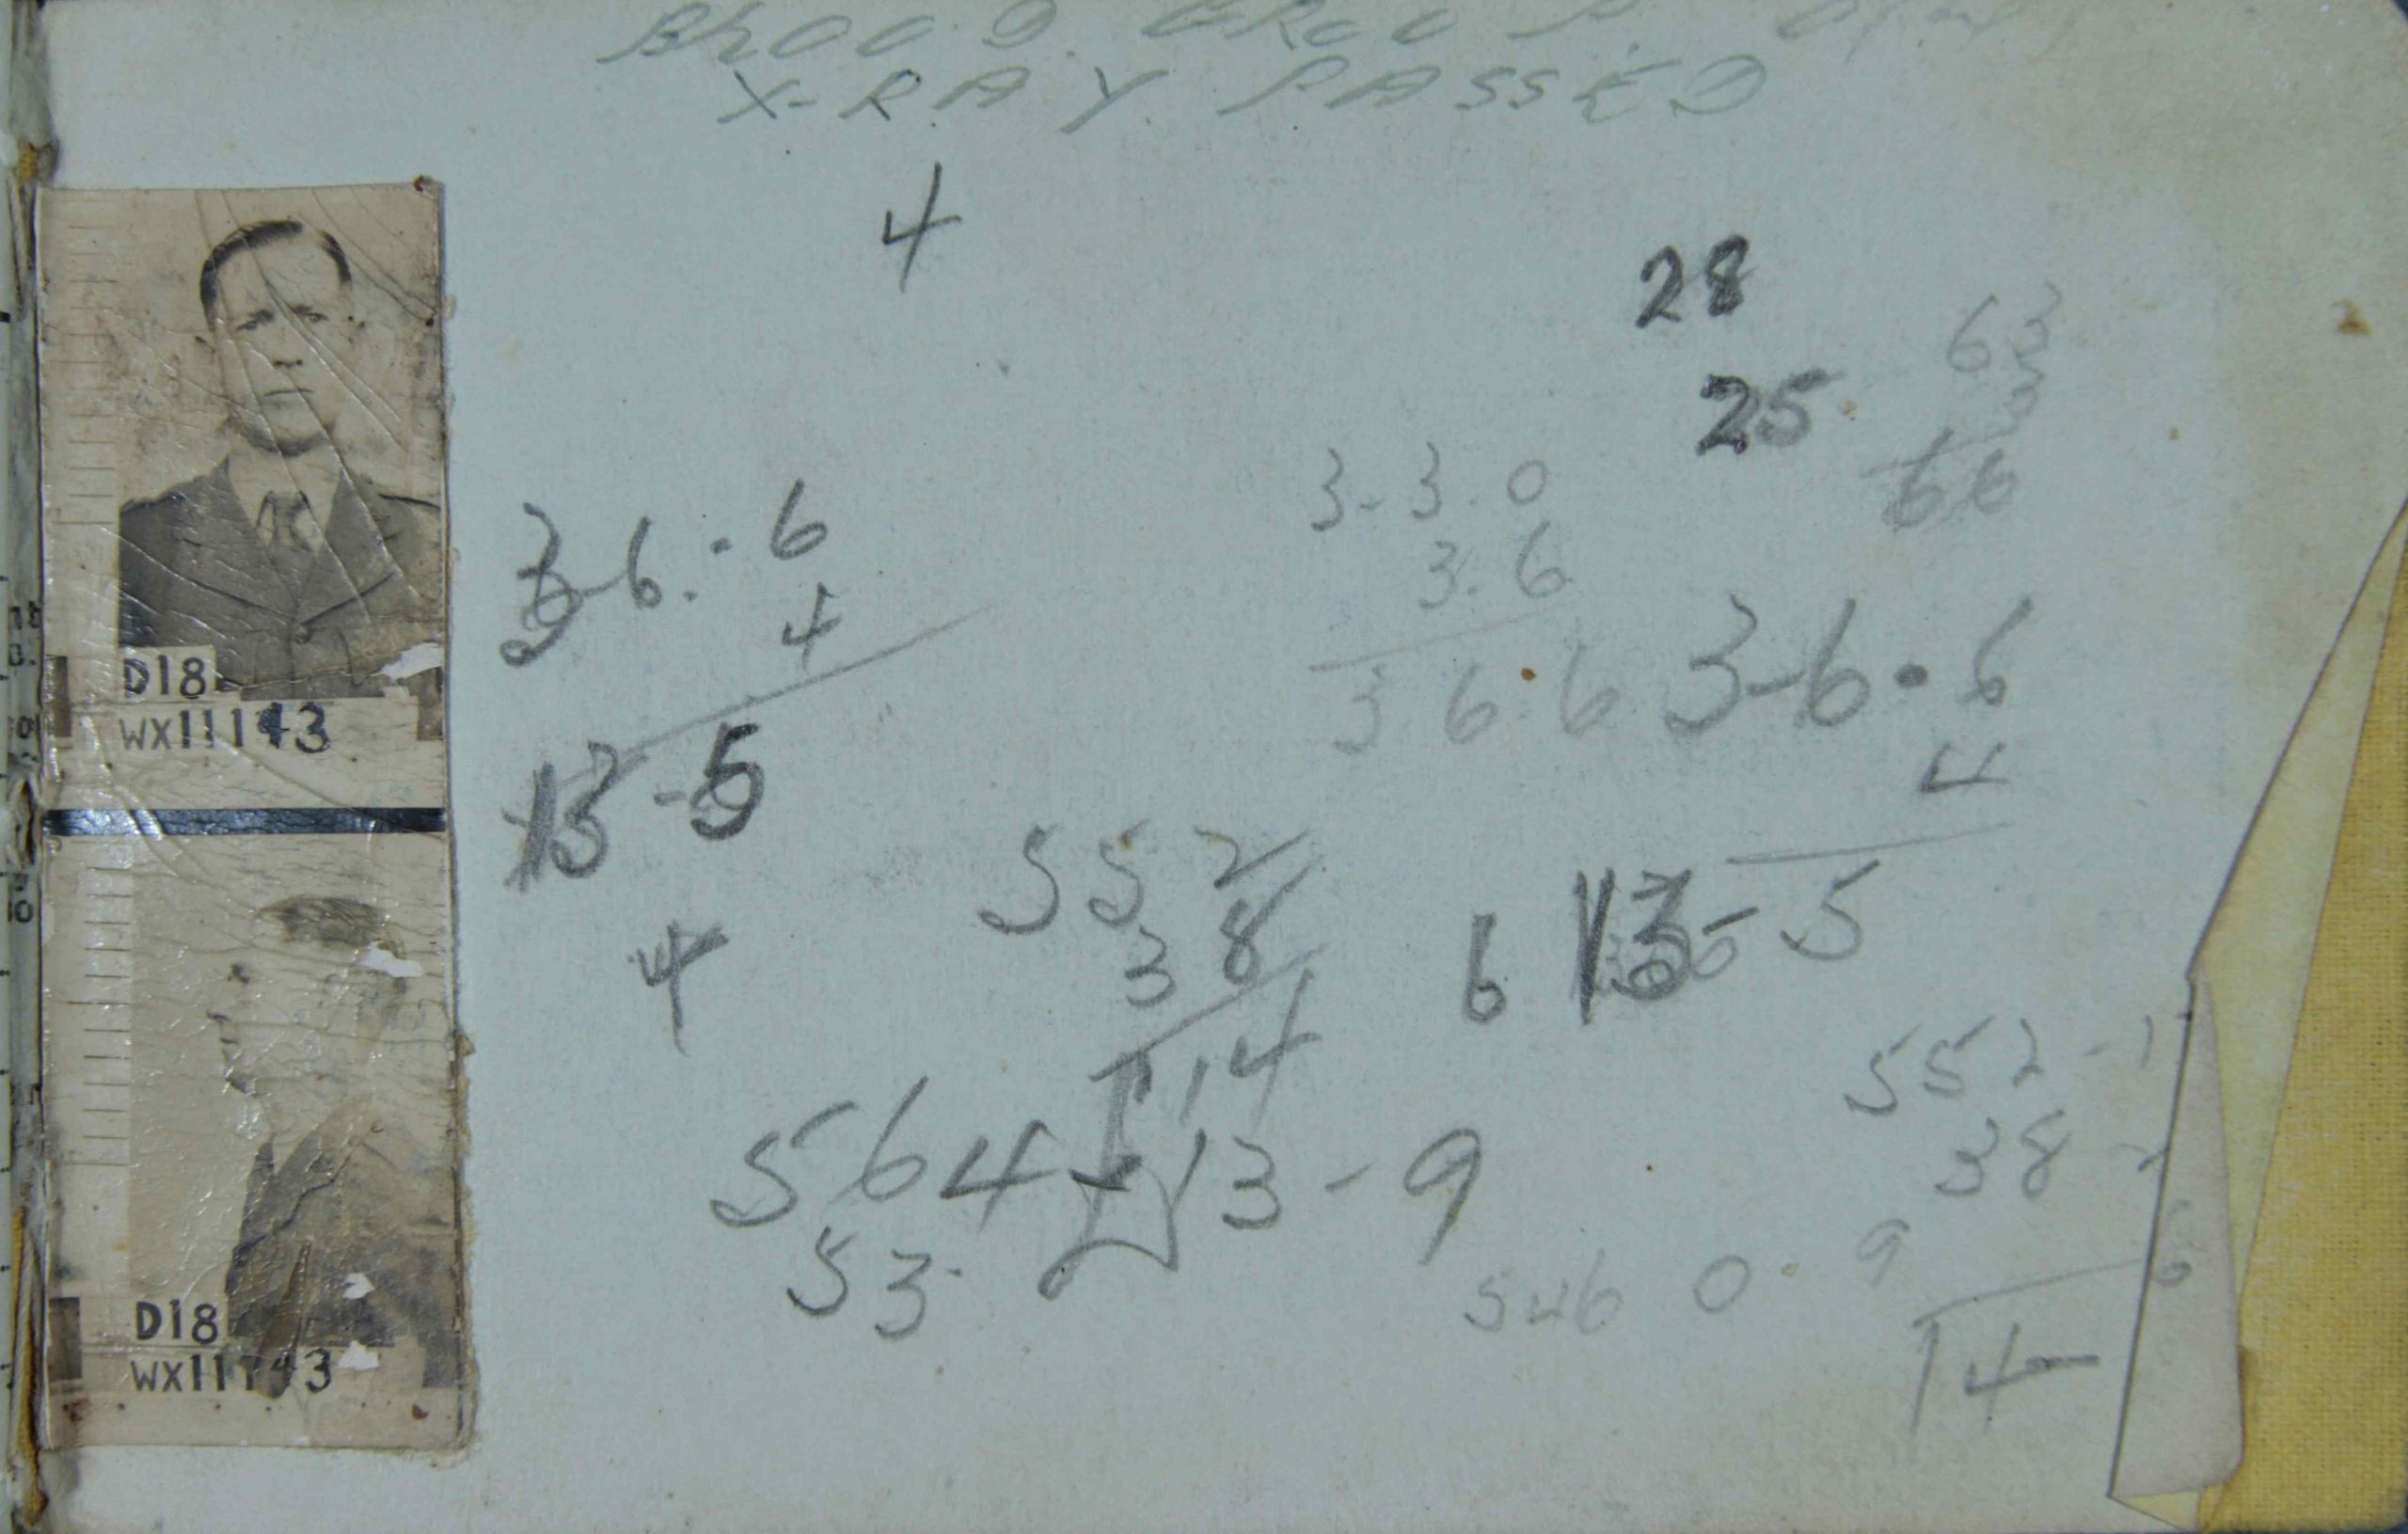 BLOOD GROUP
X-RAY PASSED
4
28
63
25
3
66
3-3.0
3.6
3 6.6
3-6.6
4
13-5
4
D18
WX11143
3-6.6
4
13-5
6
552
38
14
564-13-9
53
552-1
38
6
546 0.9
14
D18
WX11143